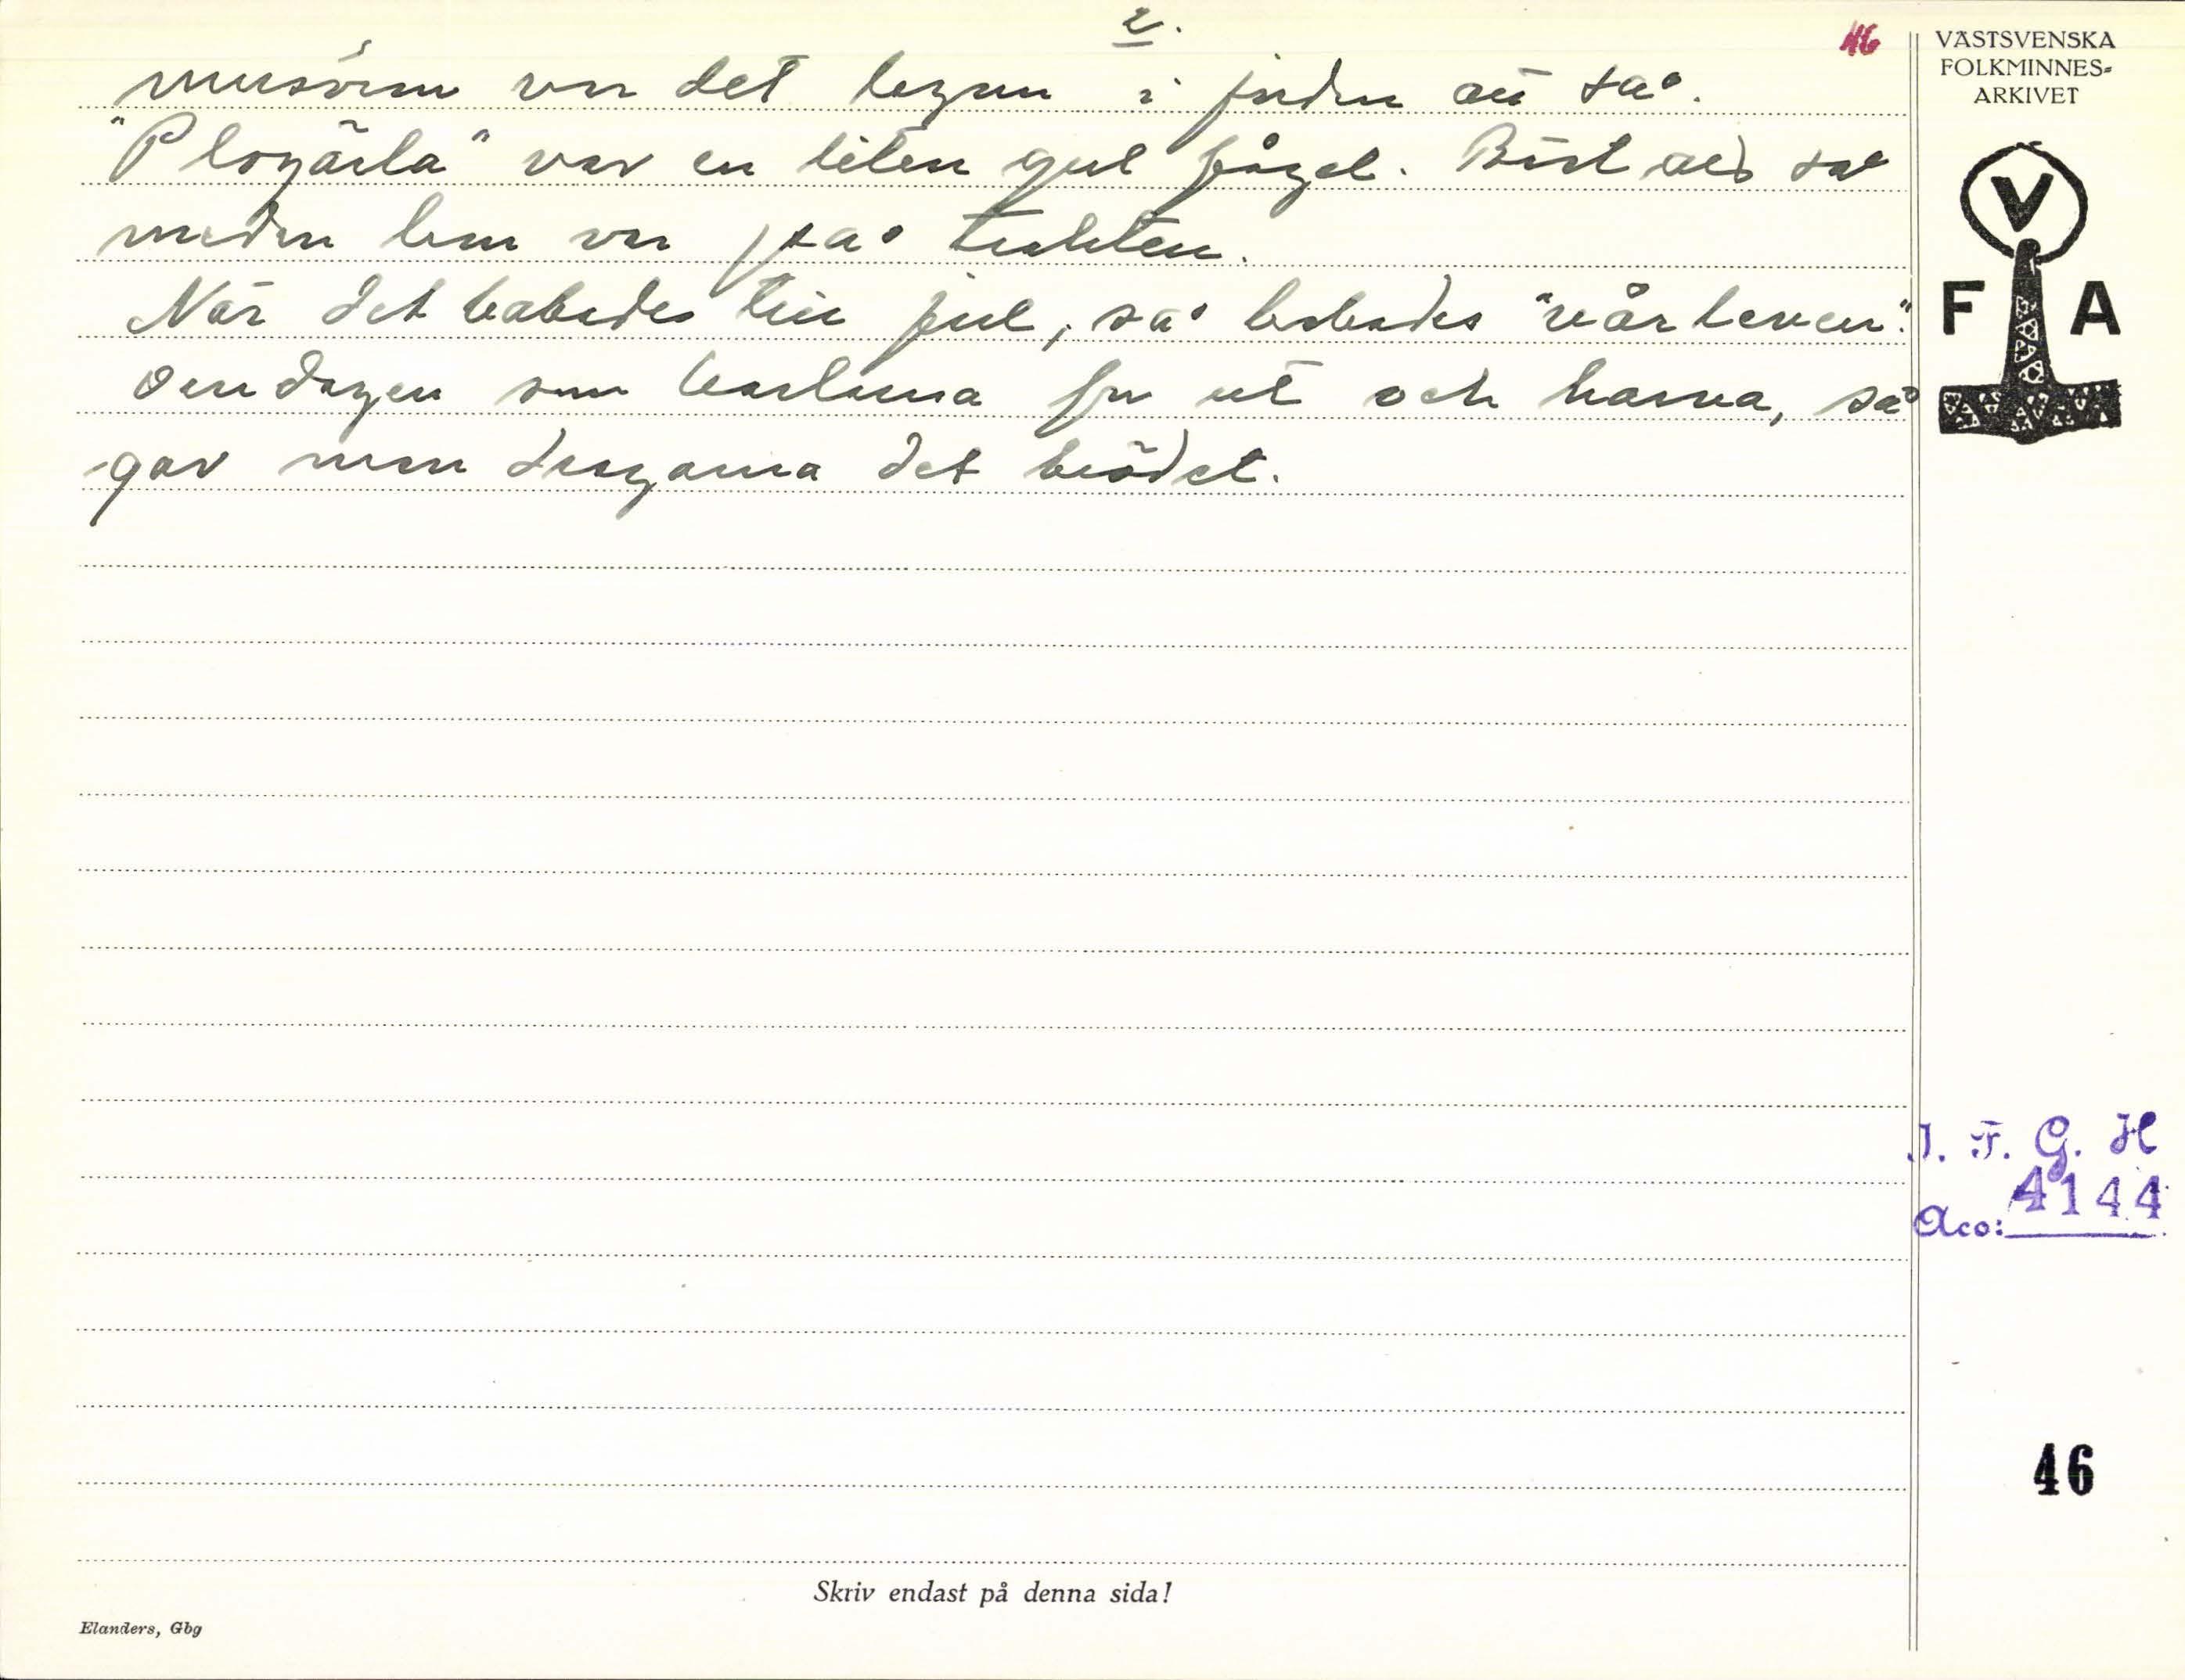 2.
46
VÄSTSVENSKA
FOLKMINNES-
ARKIVET
musöron var det lagom i jorden att så.
"Plogärla" var en liten gul fågel. Bäst att så
medan hon var på trakten.
V
När det bakades till jul, så bakades "vårleven".
F A
Den dagen som karlarna for ut och harva, så
gav man dragarna det brödet.
I. F. G. H
Acc: 4144
46
Skriv endast på denna sida!
Elanders, Gbg